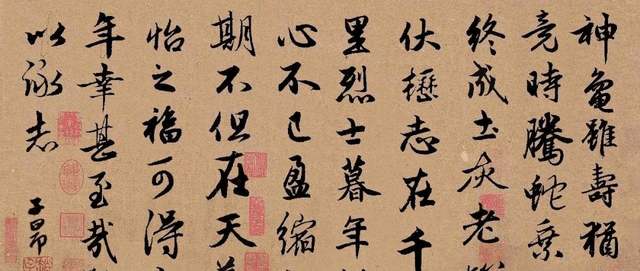 神龜雖壽猶
竟時騰蛇乘
終成土灰老
伏櫪志在千
里烈士暮年
心不已盈縮
期不但在天
怡之福可得
年幸甚至哉
以詠志
子昂